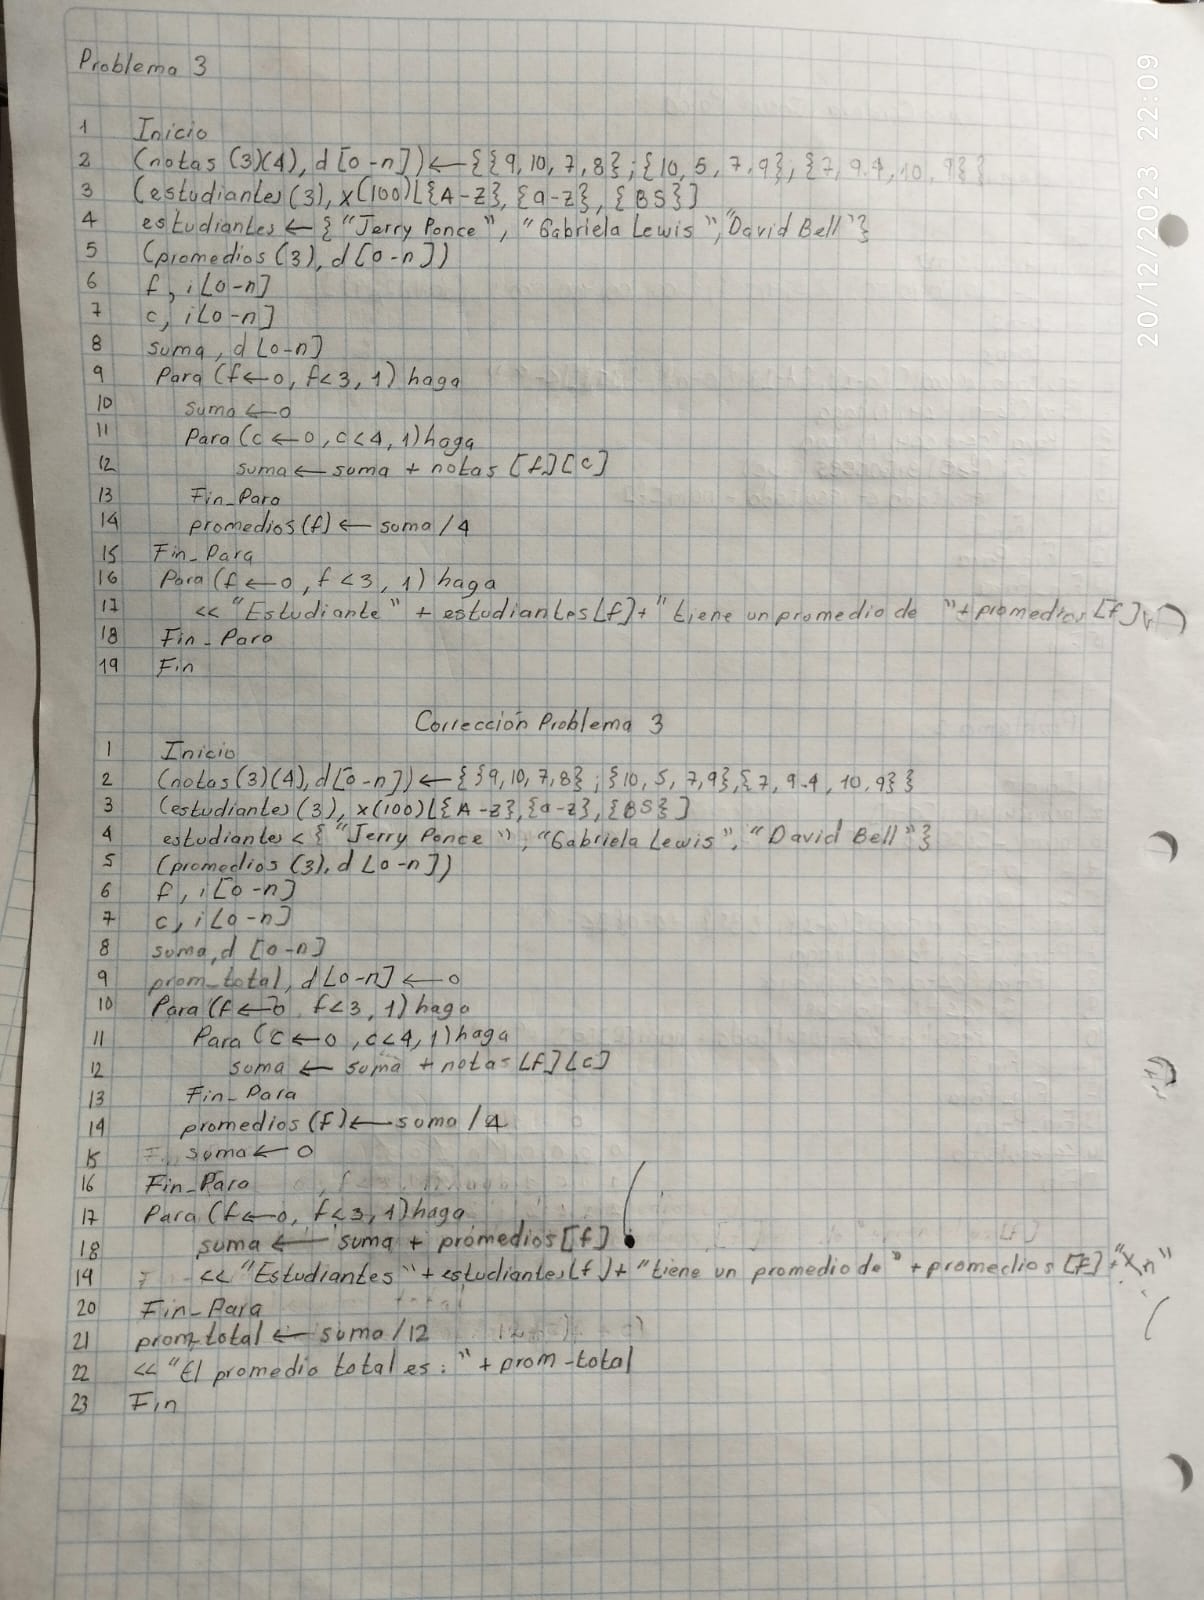 Problema 3
1 Inicio
2 (notas (3)(4), d [0-n]) ← {{9, 10, 7, 8}; {10, 5, 7, 9}; {7, 9.4, 10, 9}}
3 (estudiantes (3), x(100)[{A-Z}, {a-z}, {BS}]
4 estudiantes ← {"Jerry Ponce", "Gabriela Lewis", "David Bell"}
5 (promedios (3), d [0-n])
6 f, i[0-n]
7 c, i[0-n]
8 suma, d [0-n]
9 Para (f ← 0, f < 3, 1) haga
10 suma ← 0
11 Para (c ← 0, c < 4, 1) haga
12 suma ← suma + notas [f][c]
13 Fin_Para
14 promedios (f) ← suma / 4
15 Fin_Para
16 Para (f ← 0, f < 3, 1) haga
17 << "Estudiante" + estudiantes [f] + "tiene un promedio de " + promedios [f]
18 Fin_Para
19 Fin
Corrección Problema 3
1 Inicio
2 (notas (3)(4), d [0-n]) ← {{9, 10, 7, 8}; {10, 5, 7, 9}, {7, 9.4, 10, 9}}
3 (estudiantes (3), x(100)[{A-Z}, {a-z}, {BS}]
4 estudiantes < {"Jerry Ponce", "Gabriela Lewis", "David Bell"}
5 (promedios (3), d [0-n])
6 f, i [0-n]
7 c, i [0-n]
8 suma, d [0-n]
9 prom_total, d [0-n] ← 0
10 Para (f ← 0 f < 3, 1) haga
11 Para (c ← 0, c < 4, 1) haga
12 suma ← suma + notas [f][c]
13 Fin_Para
14 promedios (f) ← suma / 4
15 suma ← 0
16 Fin_Para
17 Para (f ← 0, f < 3, 1) haga
18 suma ← suma + promedios [f]
19 << "Estudiantes" + estudiantes [f] + "tiene un promedio de" + promedios [f] + "\n"
20 Fin_Para
21 prom_total ← suma / 12
22 << "El promedio total es:" + prom-total
23 Fin
20/12/2023 22:09